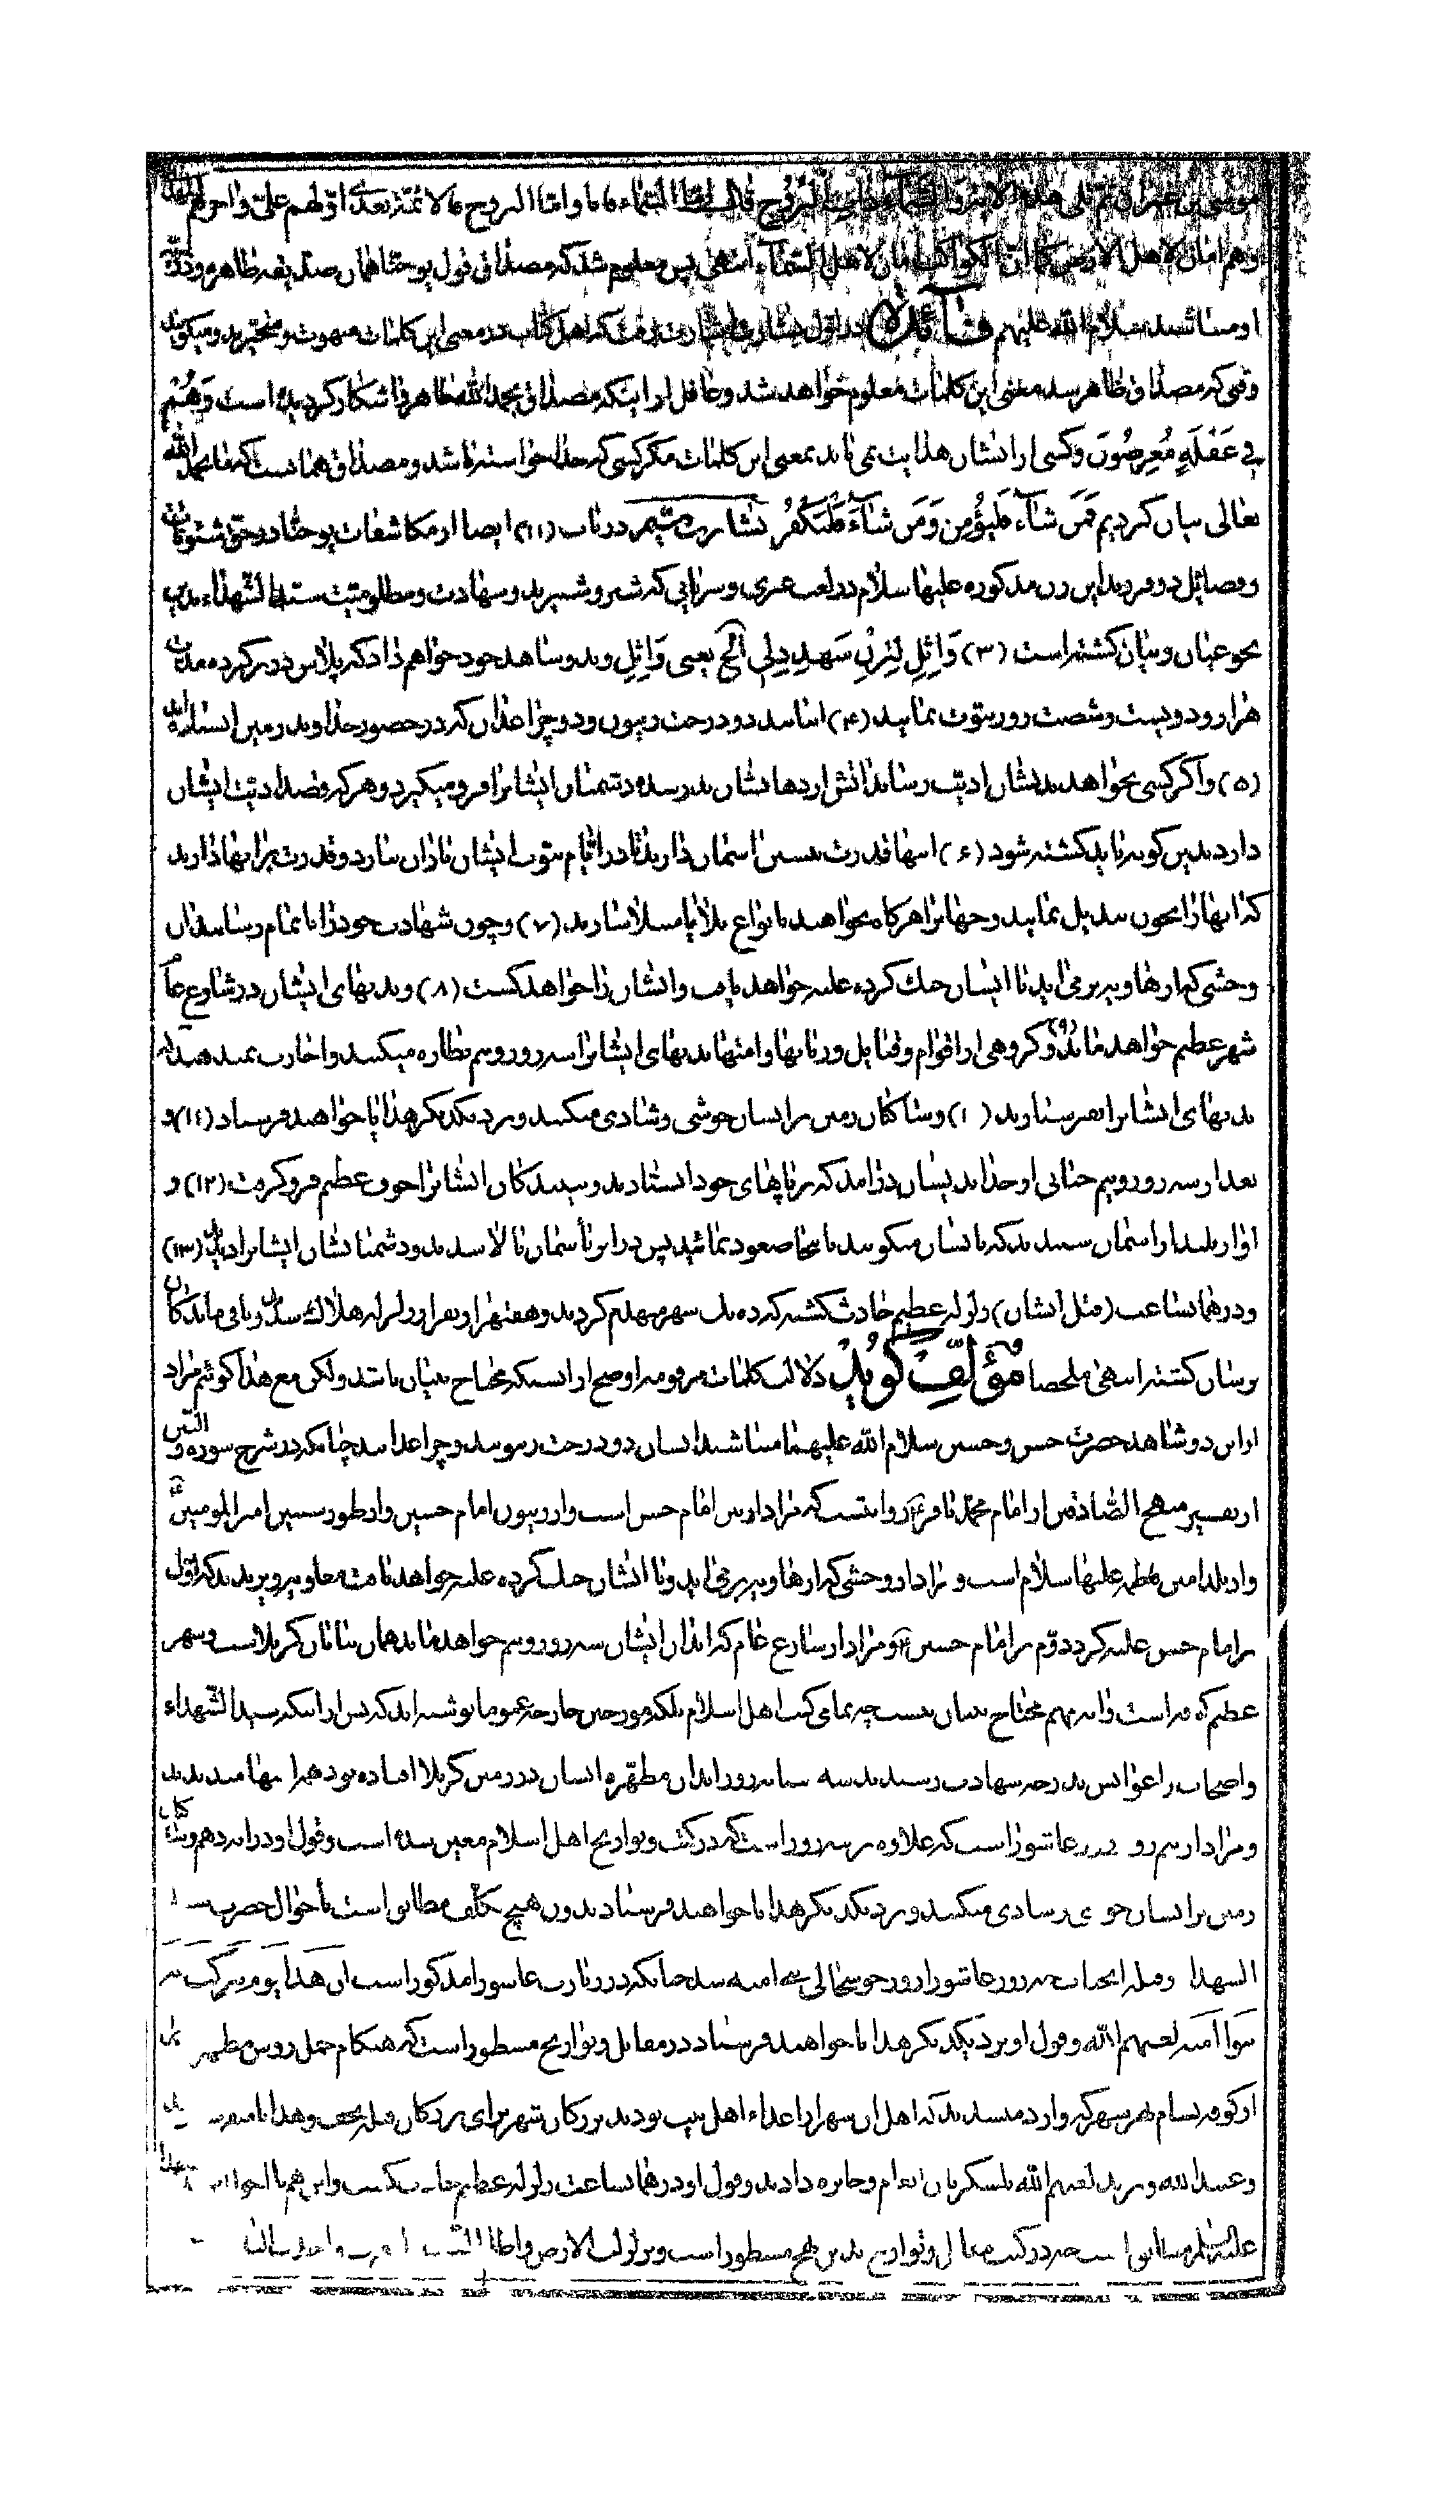 موسی بن عمران ثم تلی هذه الآیة والسماء ذات البروج قال اما السماء فانا واما البروج فالائمة بعدی اولهم علی واخرهم
وهم امان لاهل الارض كما ان الكواكب امان لاهل السماء انتهی پس معلوم شد که مصداق قول یوحنا همان صدیقه طاهره و
او میباشند سلام الله علیهم فائدة در اول بشارت اهل کتاب در معنی این کلمات مبهوت و متحیرند و میگویند
وقتی که مصداق ظاهر شد معنی این کلمات معلوم خواهد شد و غافل از اینکه مصداق بحمد الله ظاهر و اشکار گردیده است وَهُمْ
فی غَفْلَةٍ مُعْرِضُونَ و کسی از ایشان هدایت نمی یابد بمعنی این کلمات مگر کسی که خدا خواسته باشد و مصداق همانست که ما بحمد الله
تعالی بیان کردیم فَمَن شآءَ فَلْیُؤْمِن وَمَن شآءَ فَلْیَكْفُرْ بشارت در باب (۱۱) ایضا از مکاشفات یوحنا در حق
وفضائل دو فرزند این زن مذکوره علیها سلام در لغت عبری و سریانی که شبر و شبیرند و شهادت و مظلومیت سید الشهداء بدین
نحو عیان و بیان گشته است (۳) یعنی وبدو شاهد خود خواهم داد که پلاس در بر کرده مدت
هزار و دویست و شصت روز نبوت نمایند (۴) اینانند دو درخت زیتون و دو چراغدان که در حضور خداوند زمین ایستاده اند
(۵) و اگر کسی بخواهد بدیشان اذیت رساند اتش از دهانشان بدر شده دشمنان ایشانرا فرو میگیرد و هر که قصد اذیت ایشان
دارد بدین گونه باید کشته شود (۶) اینها قدرت بستن اسمان دارند تا در ایام نبوت ایشان باران نبارد و قدرت بر ابها دارند
که ابها را بخون تبدیل نمایند و جهانرا هر گاه بخواهند بانواع بلایا مبتلا سازند (۷) و چون شهادت خود را باتمام رسانند ان
وحشی که از هاویه بر می اید با ایشان جنك کرده غلبه خواهد یافت و ایشان را خواهد کشت (۸) و بدنهای ایشان در شارع عام
شهر عظیم خواهد ماند (۹) و گروهی از اقوام و قبایل و زبانها و امتها بدنهای ایشانرا سه روز و نیم نظاره میکنند و اجازت نمیدهند که
بدنهای ایشانرا بقبر سپارند (۱۰) و ساکنان زمین بر ایشان خوشی و شادی میکنند و نزد یکدیگر هدایا خواهند فرستاد (۱۱) و
بعد از سه روز و نیم حیاتی از خدا بدیشان درامد که بر پاهای خود ایستادند و بینندگان ایشانرا خوف عظیم فرو گرفت (۱۲) و
اوازی بلند از اسمان شنیدند که بایشان میگوید باینجا صعود نمائید پس در ابر بأسمان بالا شدند و دشمنانشان ایشانرا دیدند (۱۳)
و در همان ساعت (مثل ایشان) زلزله عظیم حادث گشته که ده یك شهر منهدم گردید و هفتهزار نفر از زلزله هلاك شدند و باقی ماندگان
ترسان گشتند انتهی ملخصا مؤلف گوید دلالت کلمات مرقومه اوضح از انست که محتاج ببیان باشد ولکن مع هذا گوئیم مراد
از این دو شاهد حضرت حسن و حسین سلام الله علیهما میباشند ایشان دو درخت زیتونند و چراغدانند چنانکه در شرح سوره والتین
از تفسیر منهج الصادقین از امام محمد باقر ع روایتست که مراد از تین امام حسن است و از زیتون امام حسین و از طور سینین امیر المومنین ع
و از بلد امین فاطمه علیها سلام است و مراد از وحشی که از هاویه بر می اید و با ایشان جنك کرده غلبه خواهد یافت معاویه و یزیدند که اول
بر امام حسن غلبه کرد دوم بر امام حسین ع و مراد از شارع عام که ابدان ایشان سه روز و نیم خواهد ماند همان بیابان کربلاست و شهر
عظیم کوفه است و اینهم محتاج ببیان نیست چه تمامی کتب اهل اسلام بلکه مورخین خارجه عموما نوشته اند که پس از اینکه سید الشهداء
واصحاب و اعوانش بدرجه شهادت رسیدند سه شبانه روز ابدان مطهره ایشان در زمین کربلا افتاده بود
و مراد از نیم روز روز عاشورا است که علاوه بر سه روز است که در کتب و تواریخ اهل اسلام معین شده است و قول او در ایه دهم وساکنان
زمین بر ایشان خوشی و شادی میکنند و نزد یکدیگر هدایا خواهند فرستاد بدون هیچ تکلف مطابق است باحوال حضرت سید
الشهداء روز عاشورا روز خوشحالی بنی امیه شد چنانکه در زیارت عاشورا مذکور است ان هذا یوم تبرکت به
بنوا امیه لعنهم الله و قول او نزد یکدیگر هدایا خواهند فرستاد در مقاتل و تواریخ مسطور است که هنگام حمل روس مطهر
از کوفه بشام بهر شهر که وارد میشدند که اهل ان شهر از اعداء اهل بیت بودند بزرگان شهر برای بزرگان
الله و یزید لعنهم الله بلشکریان انعام و جایزه دادند و قول او در همانساعت زلزله عظیم حادث گشت و این هم
علیه السلام در کتب مقاتل و تواریخ بدین نهج مسطور است وتزلزلت الارض